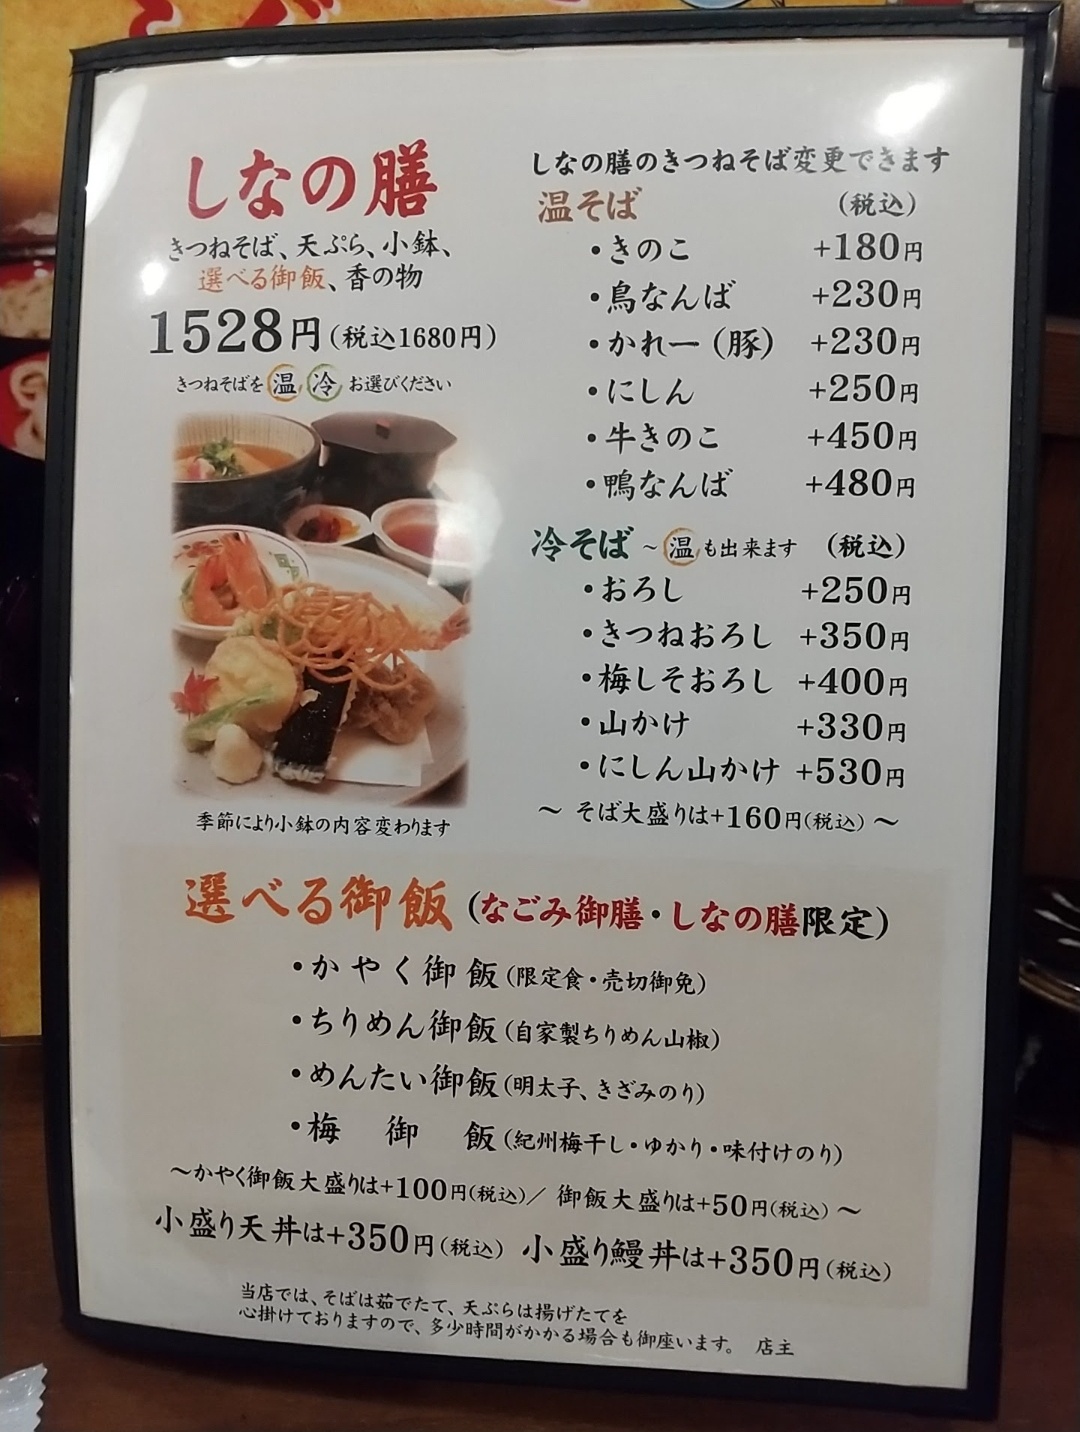 しなの膳
きつねそば、天ぷら、小鉢、
選べる御飯、香の物
1528円(税込1680円)
きつねそばを 温 冷 お選びください
季節により小鉢の内容変わります
しなの膳のきつねそば変更できます
温そば (税込)
・きのこ +180円
・鳥なんば +230円
・かれー(豚) +230円
・にしん +250円
・牛きのこ +450円
・鴨なんば +480円
冷そば ~温も出来ます (税込)
・おろし +250円
・きつねおろし +350円
・梅しそおろし +400円
・山かけ +330円
・にしん山かけ +530円
~ そば大盛りは+160円(税込) ~
選べる御飯(なごみ御膳・しなの膳限定)
・かやく御飯(限定食・売切御免)
・ちりめん御飯(自家製ちりめん山椒)
・めんたい御飯(明太子、きざみのり)
・梅御飯(紀州梅干し・ゆかり・味付けのり)
~かやく御飯大盛りは+100円(税込)/ 御飯大盛りは+50円(税込) ~
小盛り天丼は+350円(税込) 小盛り鰻丼は+350円(税込)
当店では、そばは茹でたて、天ぷらは揚げたてを
心掛けておりますので、多少時間がかかる場合も御座います。 店主